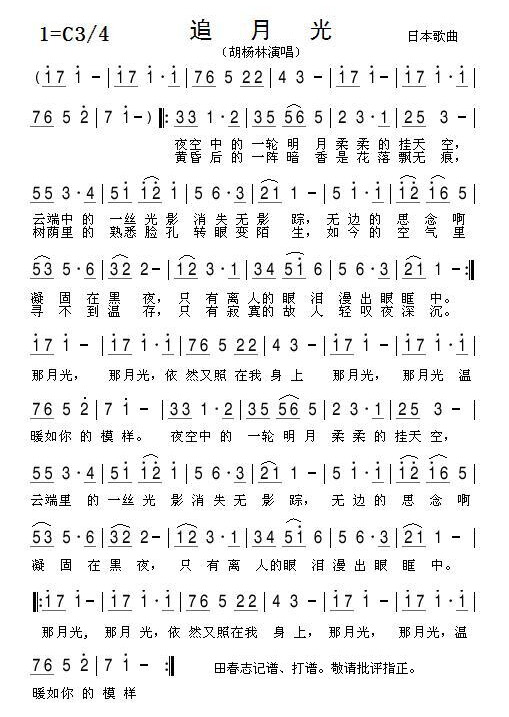 1=C3/4 追 月 光 日本歌曲
(胡杨林演唱)
( i 7 i - | i 7 i · i | 7 6 5 2 2 | 4 3 - | i 7 i - | i 7 i · i |
7 6 5 2̇ | 7 i - ) ‖: 3 3 1 · 2 | 3 5 5 6 5 | 2 3 · 1 | 2 5 3 - |
夜空 中的 一轮 明 月柔 柔的 挂天 空,
黄昏 后的 一阵 暗 香是 花落 飘无 痕,
5 5 3 · 4 | 5 i i 2̇ i | 5 6 · 3 | 2 1 1 - | 1 7 i · i | i 2̇ i 6 5 |
云端中 的 一丝 光 影 消 失 无 影 踪, 无 边的 思 念 啊
树荫里 的 熟悉 脸 孔 转 眼 变 陌 生, 如 今的 空 气 里
5 3 5 · 6 | 3 2 2 - | 1 2 3 · 1 | 3 4 5 i 6 | 5 6 · 3 | 2 1 1 - :‖
凝 固 在 黑 夜, 只 有 离 人的 眼 泪 漫 出 眼 眶 中。
寻 不 到 温 存, 只 有 寂 寞的 故 人 轻 叹 夜 深 沉。
i 7 i - | i 7 i · i | 7 6 5 2 2 | 4 3 - | i 7 i - | i 7 i · i |
那月光, 那月光,依 然又照 在我 身 上 那月光, 那月光 温
7 6 5 2̇ | 7 i - | 3 3 1 · 2 | 3 5 5 6 5 | 2 3 · 1 | 2 5 3 - |
暖如你 的 模样。 夜空中 的 一轮 明 月 柔 柔 的 挂天 空,
5 5 3 · 4 | 5 i i 2̇ i | 5 6 · 3 | 2 1 1 - | 1 7 i · i | i 2̇ i 6 5 |
云端里 的 一丝 光 影 消 失 无 影 踪, 无 边 的 思 念 啊
5 3 5 · 6 | 3 2 2 - | 1 2 3 · 1 | 3 4 5 i | 5 6 · 3 | 2 1 1 - |
凝 固 在 黑 夜, 只 有 离 人的眼 泪 漫出 眼 眶 中。
‖: i 7 i - | i 7 i · i | 7 6 5 2 2 | 4 3 - | i 7 i - | i 7 i · i |
那月光, 那月 光,依 然又照在我 身 上, 那月光, 那月光,温
7 6 5 2̇ | 7 i - :‖ 田春志记谱、打谱。敬请批评指正。
暖如你 的 模样